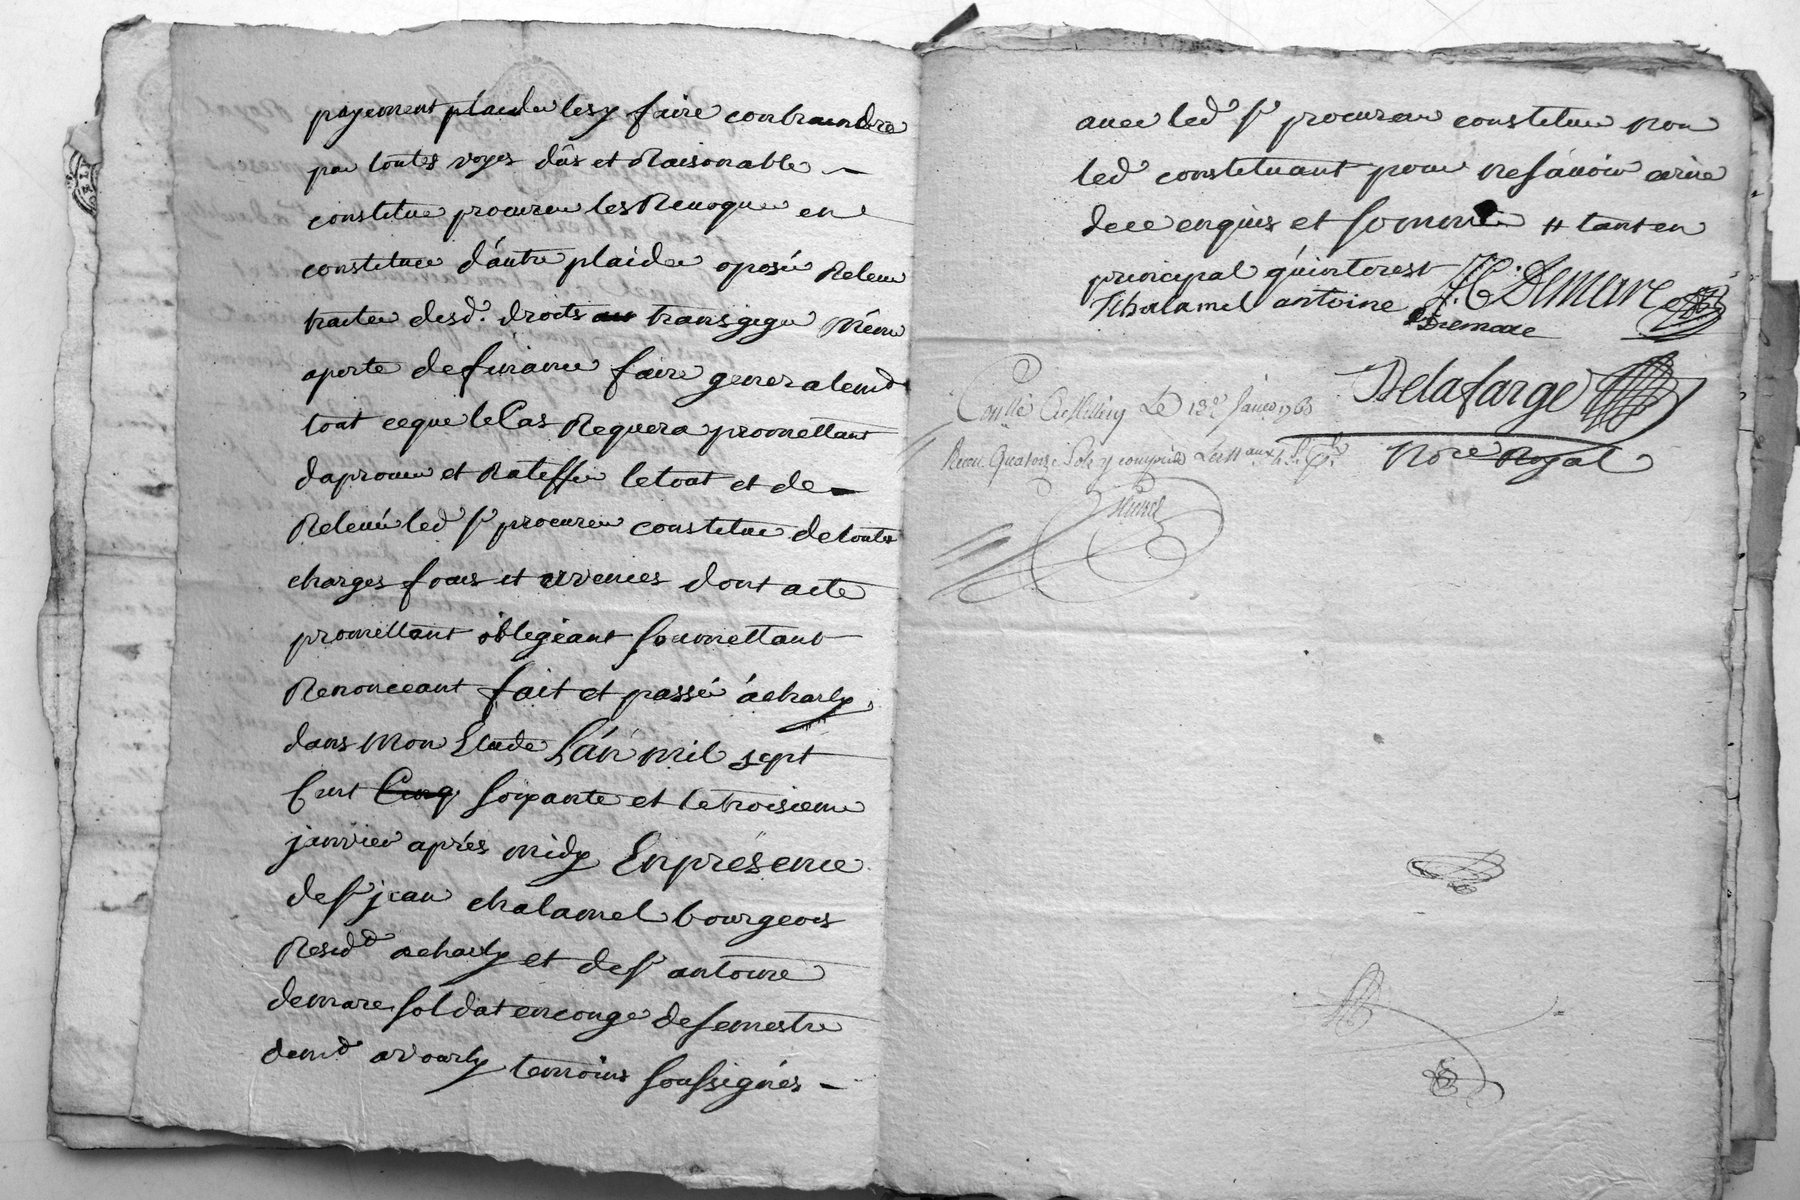 payement plaider lesy faire contraindre
par toutes voyes dûs et Raisonable
constitue procureur les Revoquer en
constituer d'autre plaider oposér Relever
traiter desd. droits transgiger même
aperte definance faire generalemt
tout ceque leCas Requera promettant
daprouver et Ratiffier letout et de
Relever led Sr procureur constitue detoutes
charges et dont acte
promettant obligeant Soumettant
Renonceant fait et passé àcharly
dans Mon Etude L'an mil sept
Cent Cinq Soixante et letroisieme
janvier aprés midy Enprésence
deSr jean chalamel bourgeois
Residt acharly et deSr antoine
demare Soldat encongé desemestre
demt avourly temoins Soussignés
avec led Sr procureur constitue non
led constituant pour neSavoir
dece enquis et Sommé # tanten
principal quinterest J C DEmare
Chalamel antoine
Demare
Delafarge
Conllé Le 13e Janer 1760
Recu Quatorze Sols y compris Les
Nore Royal